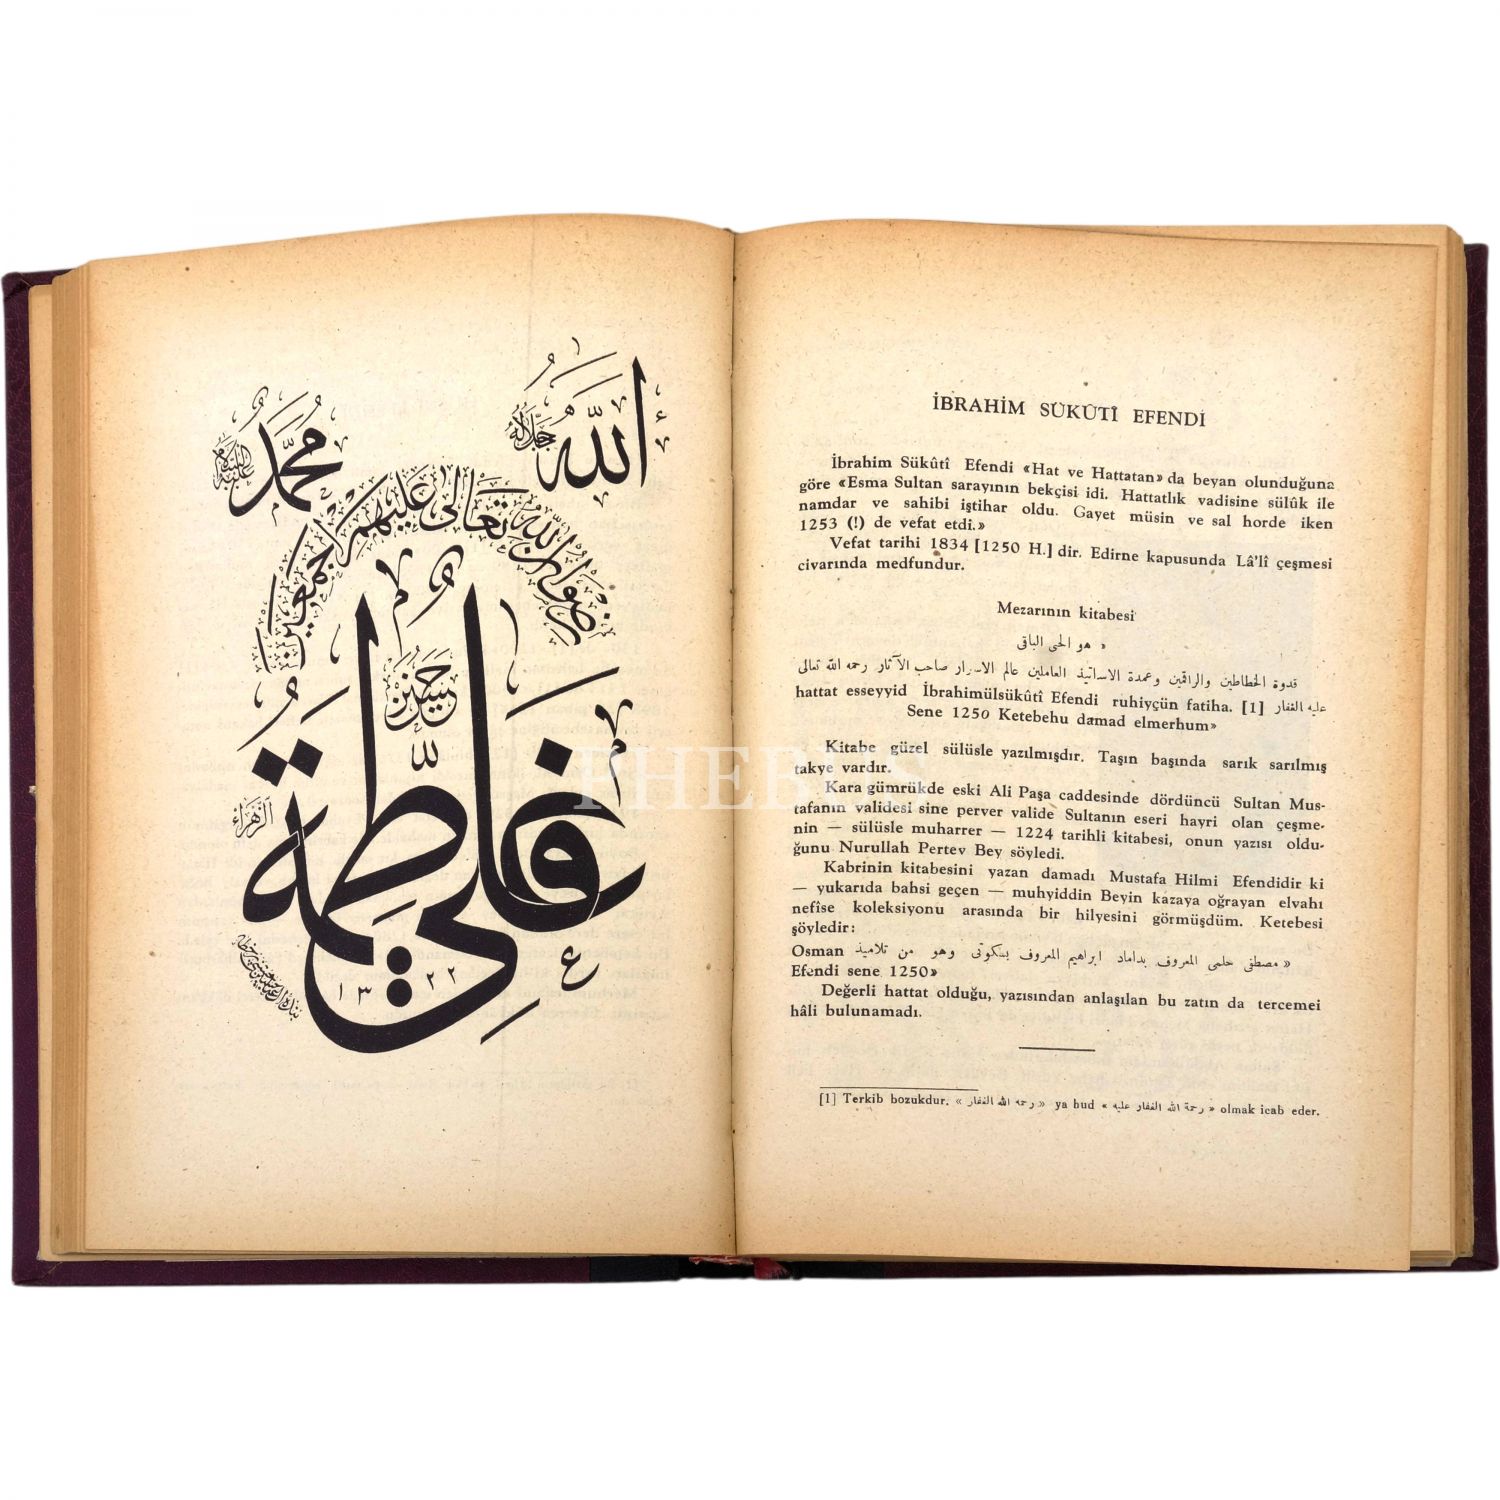 الله
جل جلاله
محمد
عليه السلام
رضوان الله تعالى عليهم اجمعين
حسن
حسين
علي
فاطمة
الزهراء
١٣٢٢
İBRAHİM SÜKÛTÎ EFENDİ
İbrahim Sükûtî Efendi «Hat ve Hattatan» da beyan olunduğuna
göre «Esma Sultan sarayının bekçisi idi. Hattatlık vadisine sülûk ile
namdar ve sahibi iştihar oldu. Gayet müsin ve sal horde iken
1253 (!) de vefat etdi.»
Vefat tarihi 1834 [1250 H.] dir. Edirne kapusunda Lâ'lî çeşmesi
civarında medfundur.
Mezarının kitabesi
« هو الحى الباقى
قدوة الخطاطين والراقمين وعمدة الاساتيذ العاملين عالم الاسرار صاحب الآثار رحمه الله تعالى
hattat esseyyid İbrahimülsükûtî Efendi ruhiyçün fatiha. [1] عليه الغفار
Sene 1250 Ketebehu damad elmerhum»
Kitabe güzel sülüsle yazılmışdır. Taşın başında sarık sarılmış
takye vardır.
Kara gümrükde eski Ali Paşa caddesinde dördüncü Sultan Mus-
tafanın validesi sine perver valide Sultanın eseri hayri olan çeşme-
nin — sülüsle muharrer — 1224 tarihli kitabesi, onun yazısı oldu-
ğunu Nurullah Pertev Bey söyledi.
Kabrinin kitabesini yazan damadı Mustafa Hilmi Efendidir ki
— yukarıda bahsi geçen — muhyiddin Beyin kazaya oğrayan elvahı
nefîse koleksiyonu arasında bir hilyesini görmüşdüm. Ketebesi
şöyledir:
Osman « مصطفى حلمى المعروف بداماد ابراهيم المعروف بسكوتى وهو من تلاميذ
Efendi sene 1250»
Değerli hattat olduğu, yazısından anlaşılan bu zatın da tercemei
hâli bulunamadı.
[1] Terkib bozukdur. « رحمه الله الغفار » ya hud « رحمة الله الغفار عليه » olmak icab eder.
PHEBUS